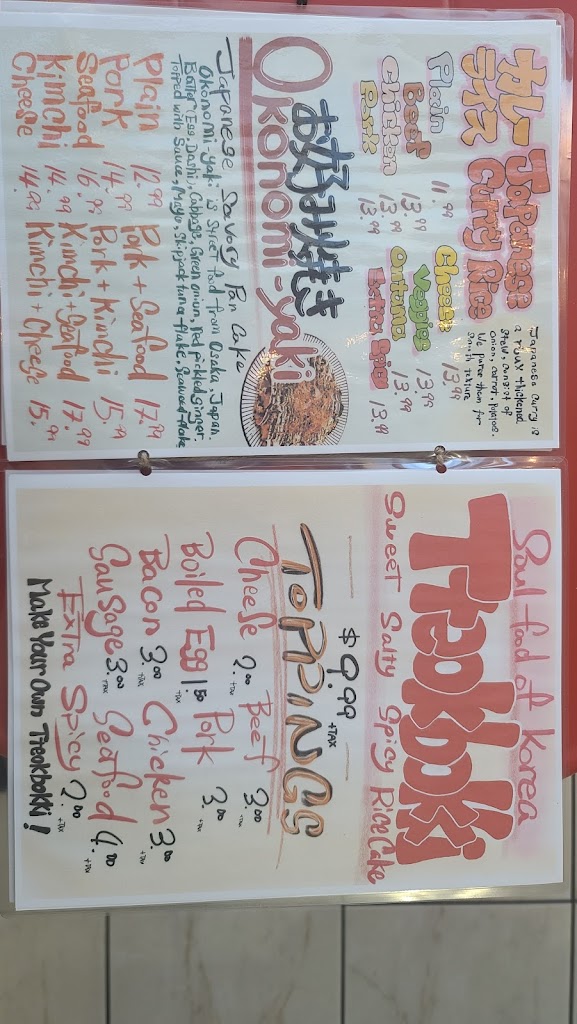 カレー JAPANESE
ライス CURRY Rice
Japanese Curry is
a roux thickened
stew, consist of
onion, carrot, potatos.
We puree them for
smooth texture
Plain 11.99 Cheese 13.99
Beef 13.99 Veggies 13.99
Chicken 13.99 Ontama 13.99
Pork 13.99 Extra Spice 13.99
お好み焼き
Okonomi-yaki
Japanese Savory Pan Cake
Okonomi yaki is street food from Osaka, Japan.
Batter, Egg, Dashi, Cabbage, Green onion, red pickled ginger.
Topped with Sauce, Mayo, Skipjack tuna flake, Seaweed flake
Plain 12.99 Pork + Seafood 17.99
Pork 14.99 Pork + Kimchi 15.99
Seafood 16.99 Kimchi + Seafood 17.99
Kimchi 14.99 Kimchi + Cheese 15.99
Cheese 14.99
Soul food of Korea
Tteokbokki
Sweet Salty Spicy Rice Cake
$9.99 +TAX
TOPPINGS
Cheese 2.00 +TAX Beef 3.00 +TAX
Boiled Egg 1.50 +TAX Pork 3.00 +TAX
Bacon 3.00 +TAX Chicken 3.00 +TAX
Sausage 3.00 +TAX Seafood 4.00 +TAX
Extra Spicy 2.00 +TAX
Make Your Own Tteokbokki!